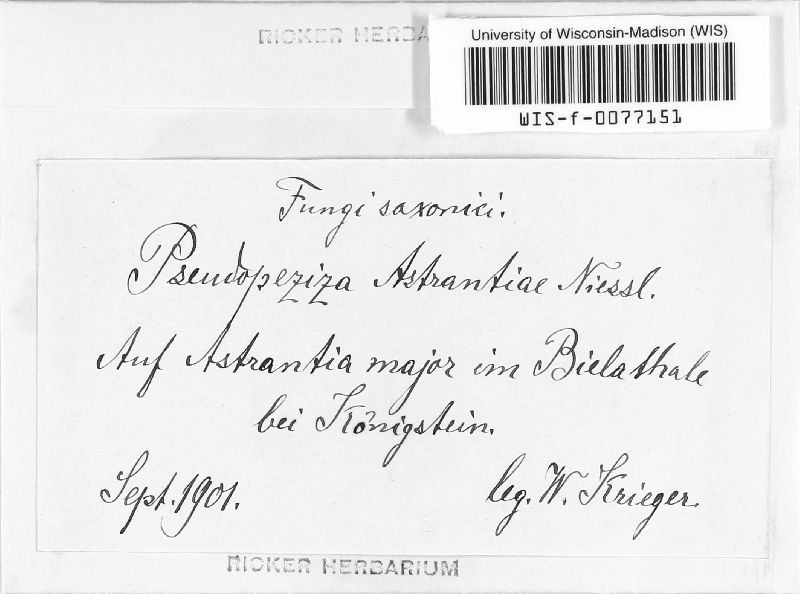 RICKER HERBA
University of Wisconsin-Madison (WIS)
WIS-f-0077151
Fungi saxonici.
Pseudopeziza Astrantiae Niessl.
Auf Astrantia major im Bielathale
bei Königstein.
Sept. 1901.
leg. W. Krieger.
RICKER HERBARIUM